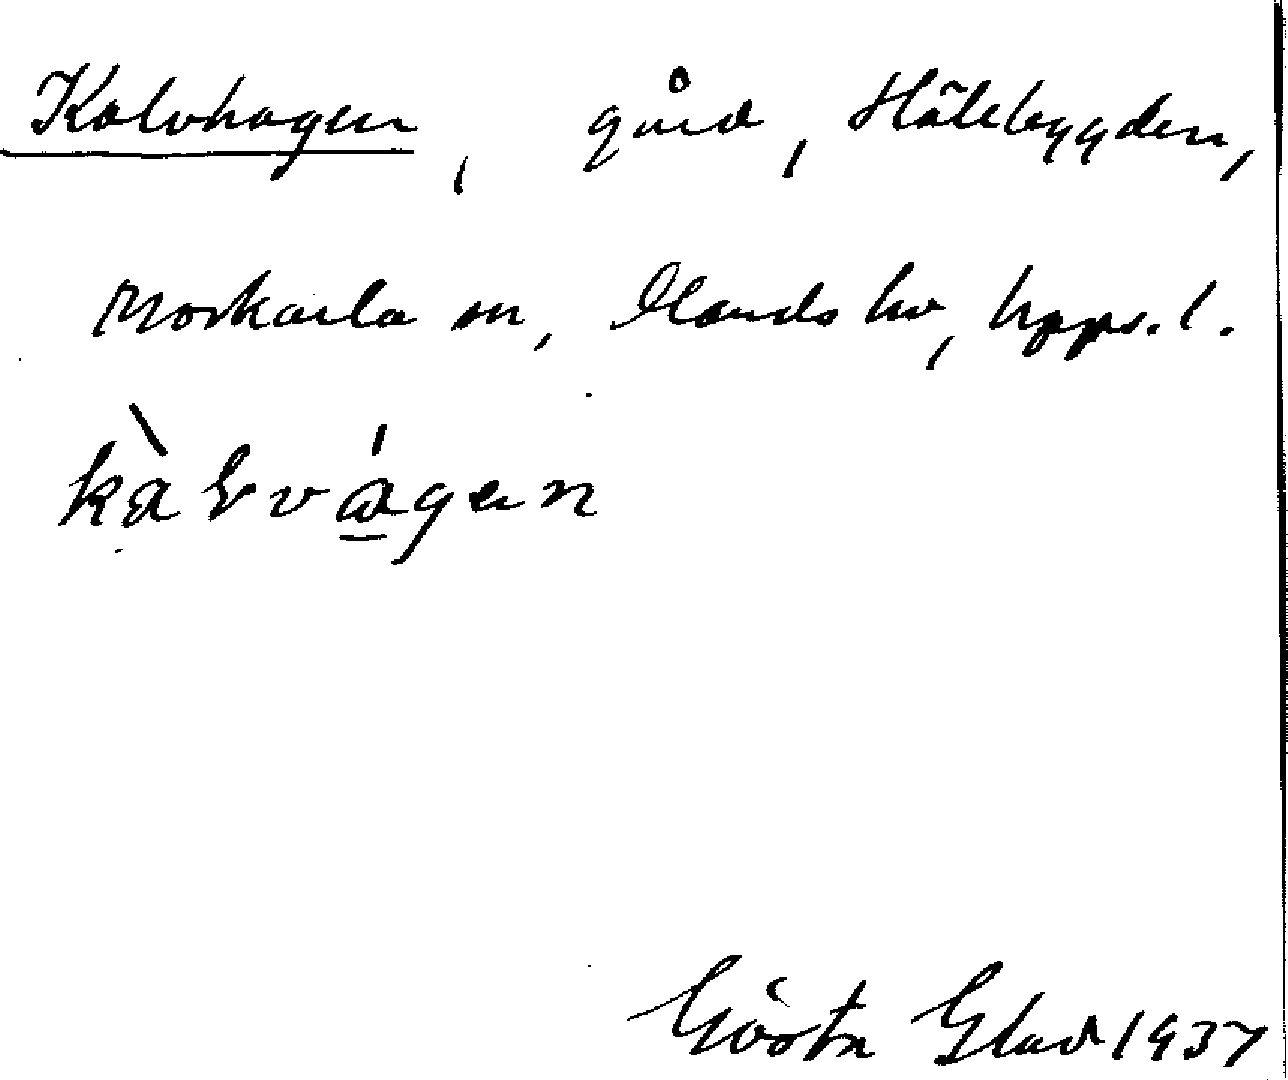 Kalvhagen, gård, Hålebygden,
Morkarla sn, Olands hd, Upps. l.
kàɭvágen
Gösta Glad 1937